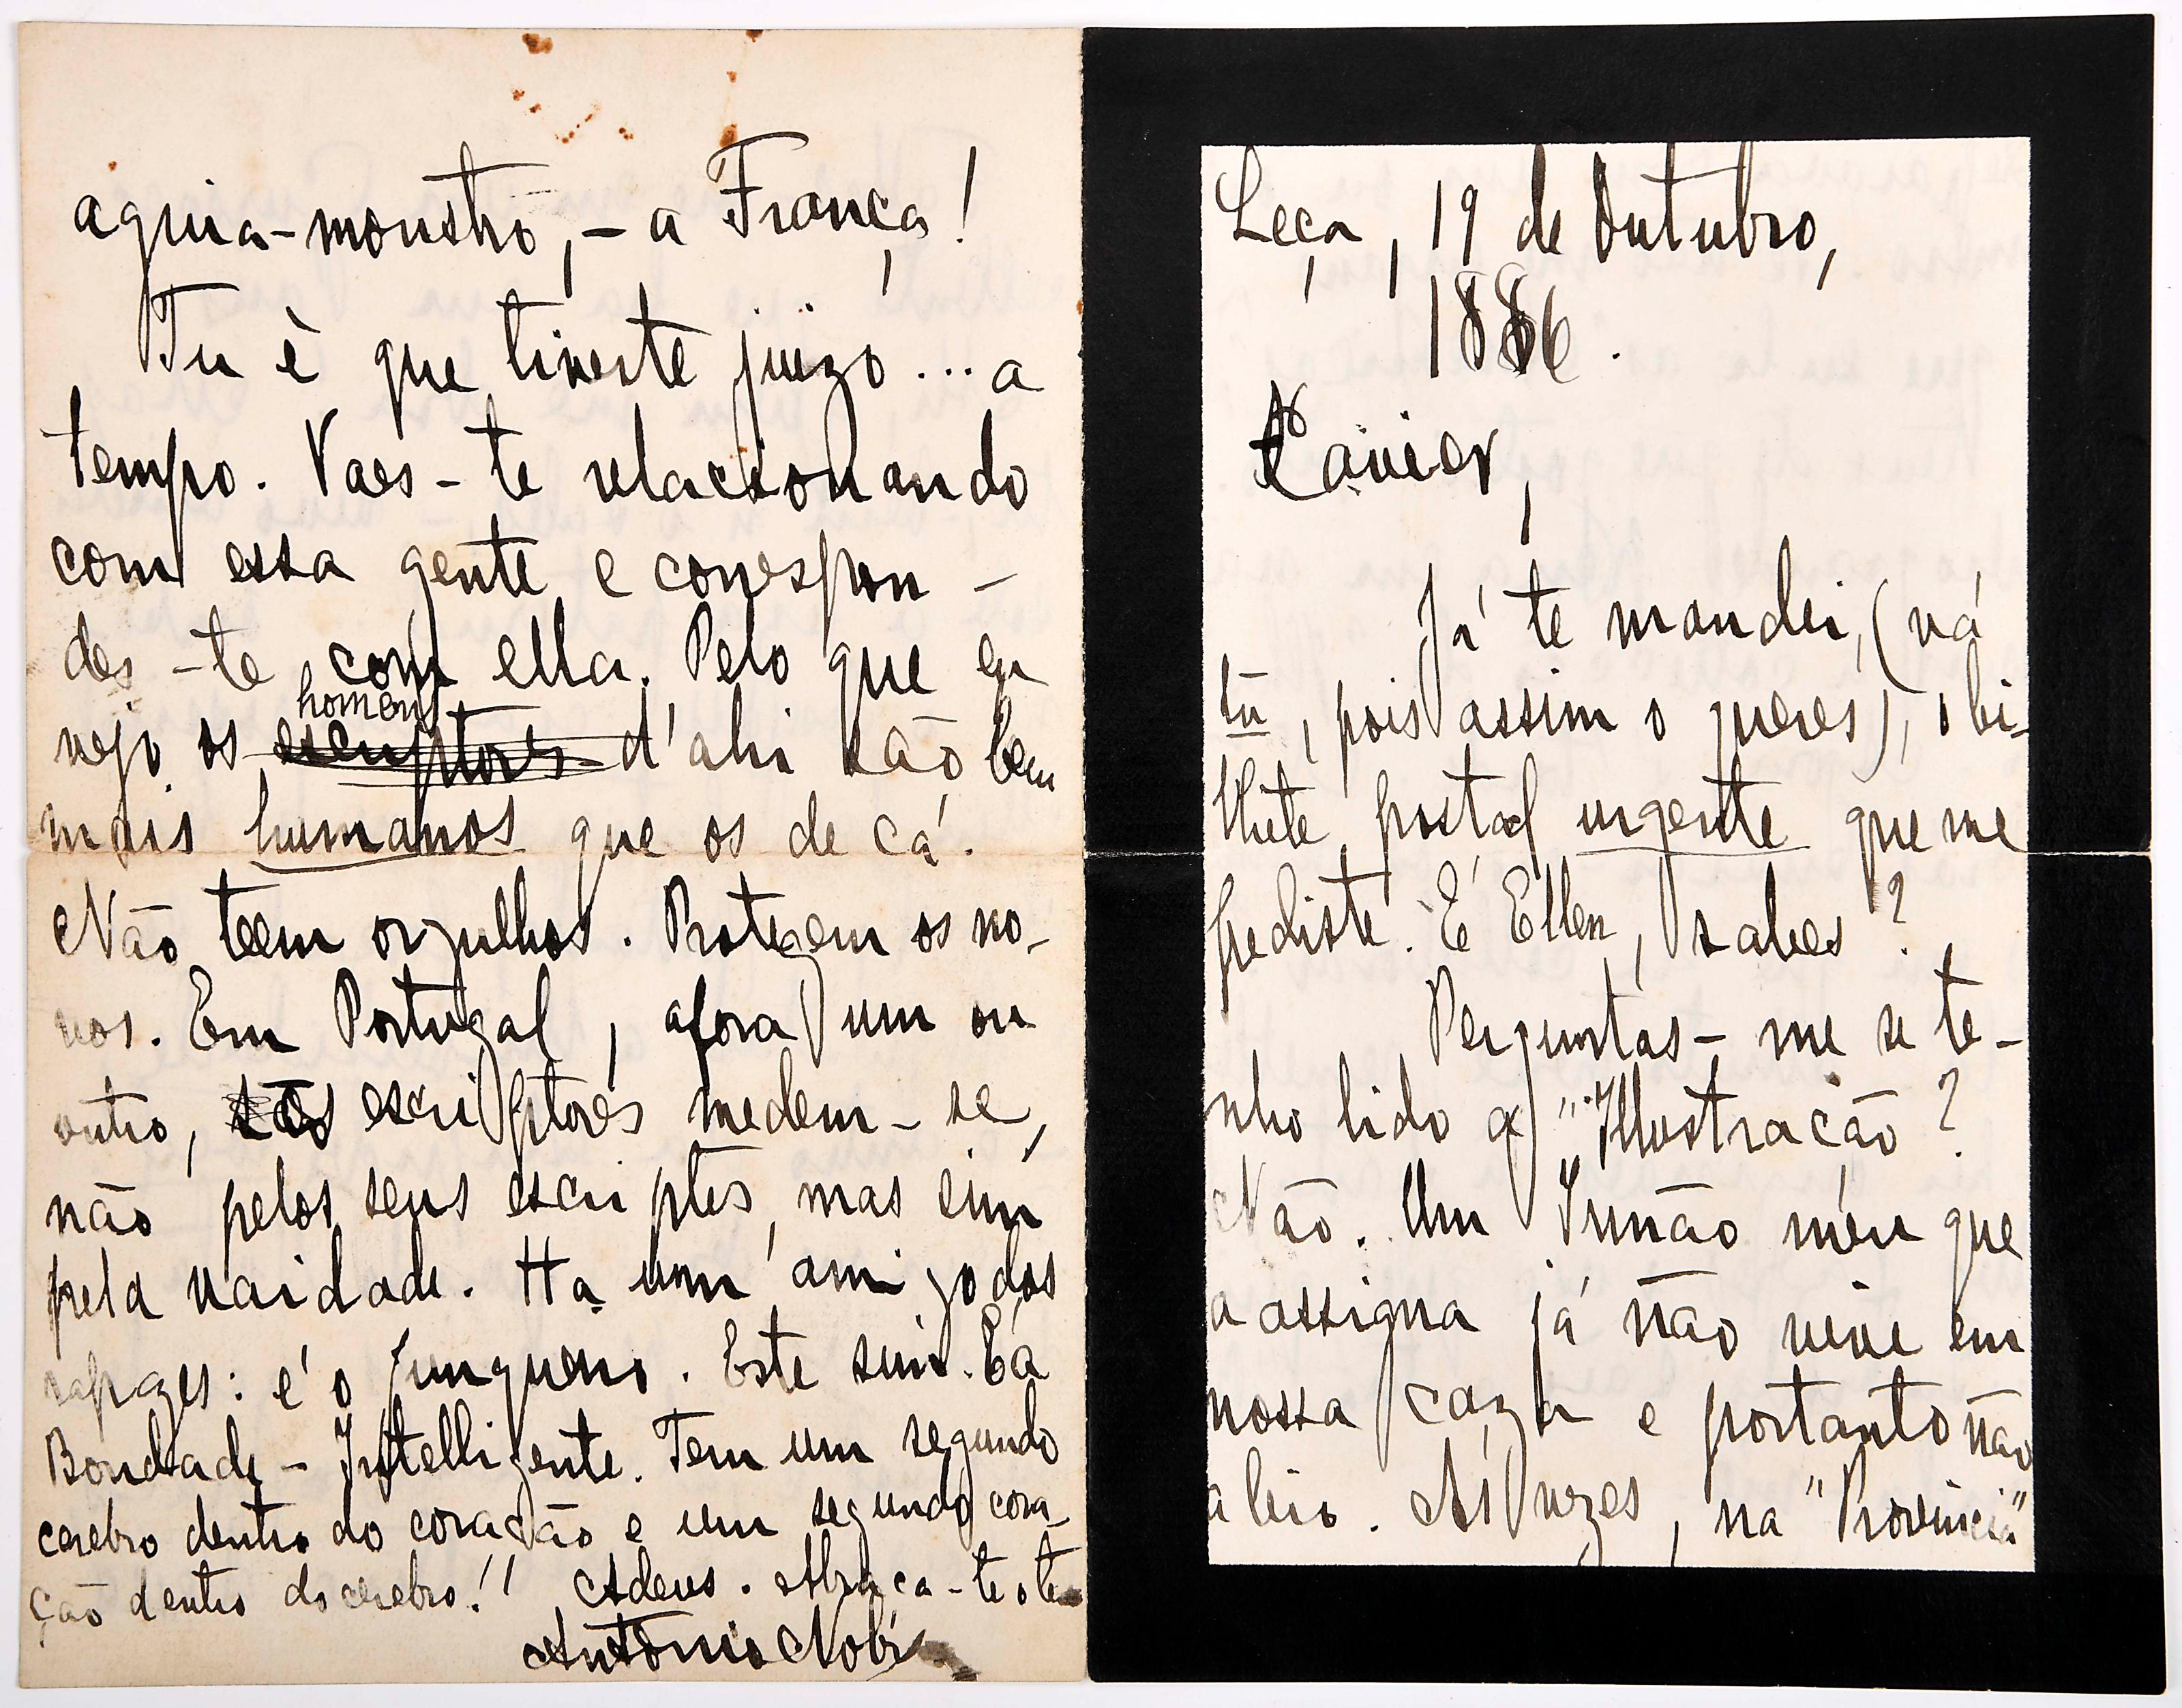 Leça, 19 de Outubro,
1886.
Xavier,
Já te mandei, (vá
tu, pois assim o queres), o bi-
lhete postal urgente que me
pediste. É Ellen, sabes?
Perguntas-me se te-
nho lido a "Illustração"?
Não. Um Irmão meu que
a assigna já não vive em
nossa caza e portanto não
a leio. Ás vezes, na "Provincia"
aguia-monstro, - a França!
Tu é que tiveste juizo... a
tempo. Vaes-te relacionando
com essa gente e corespon-
des-te com ella. Pelo que eu
homens
vejo os escriptores d'ahi são bem
mais humanos que os de cá.
Não teem orgulhos. Protegem os no-
vos. Em Portugal, afora um ou
outro, os escriptores medem-se,
não pelos seus escriptos, mas sim
pela vaidade. Ha um amigo dos
rapazes: é o Junqueiro. Este sim. É a
Bondade-Intelligente. Tem um segundo
cerebro dentro do coração e um segundo cora-
ção dentro do cerebro!! Adeus. Abraça-te o teu
António Nobre